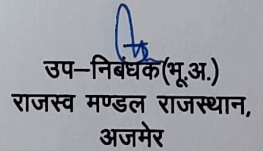 उप–निबंधक(भू.अ.)
राजस्व मण्डल राजस्थान,
अजमेर